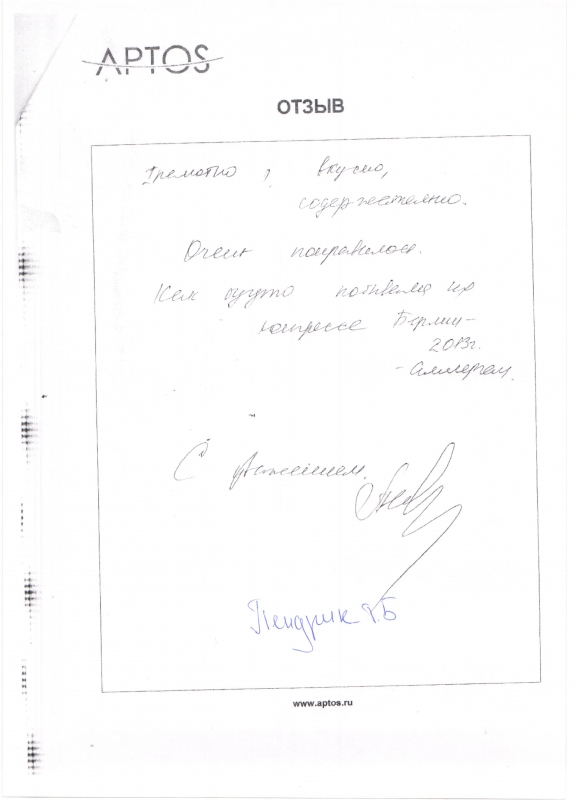 APTOS
ОТЗЫВ
Грамотно, вкусно,
содержательно.
Очень понравилось.
Как будто побывала на
конгрессе Берлин-
2013г.
С уважением.
www.aptos.ru